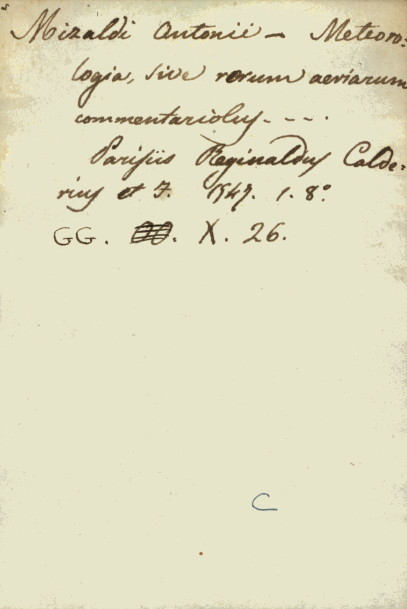 Mizaldi Antonii - Meteoro-
logia, sive rerum aeriarum
commentariolus - - - .
Parisiis Reginaldus Calde-
rius et F. 1547. 1. 8°.
GG. X. 26.
C